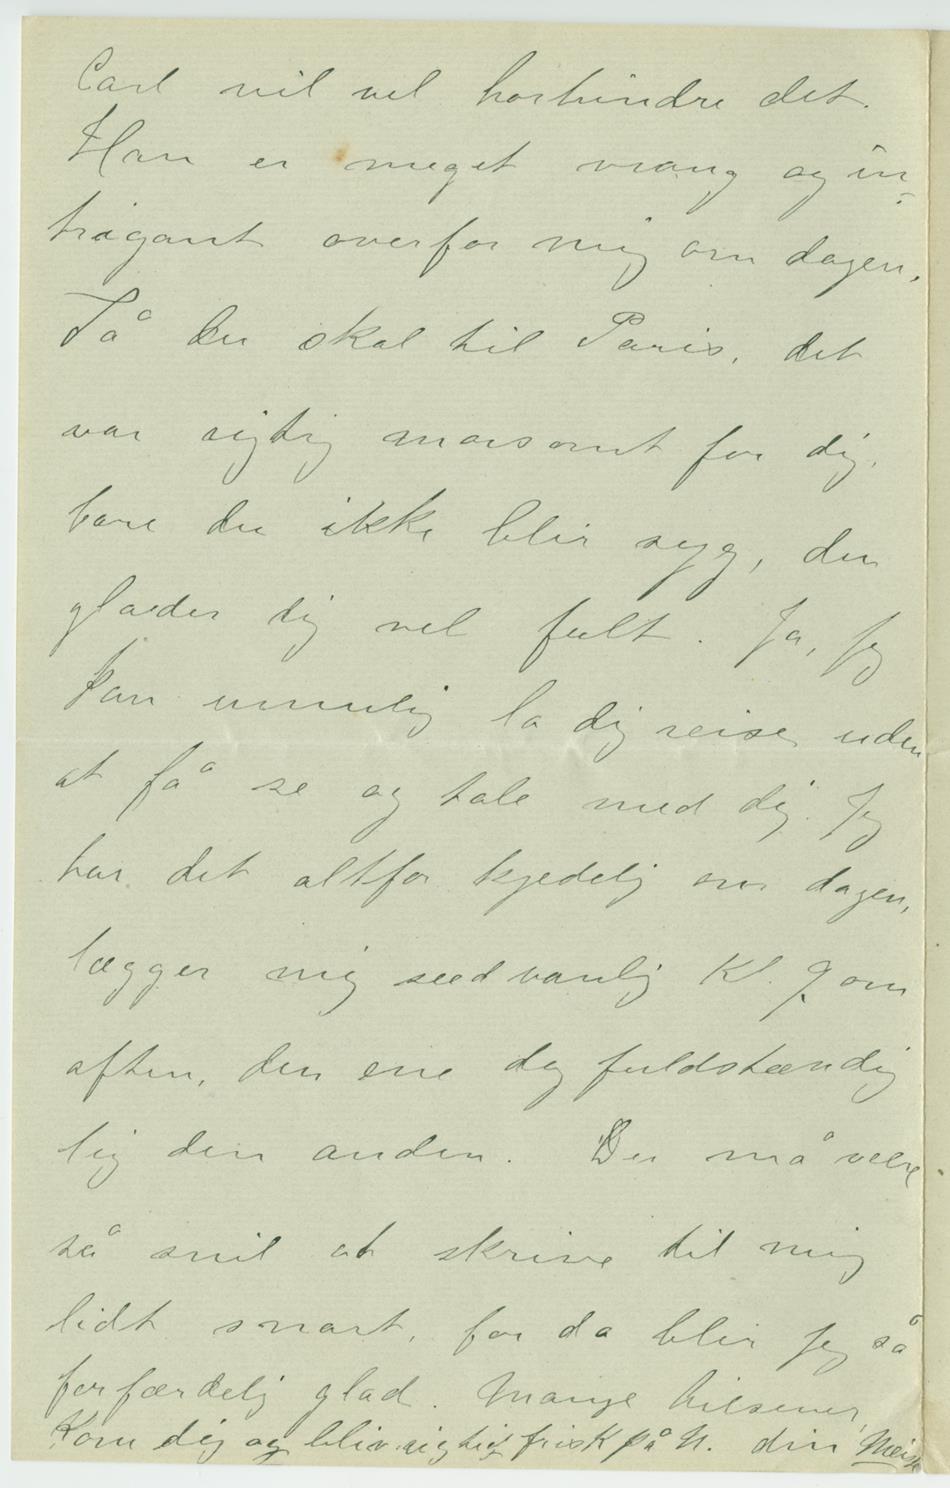 Carl vil vel forhindre det.
Han er meget vrang og in-
trigant overfor mig om dagen.
Så du skal til Paris, det
var rigtig morsomt for dig,
bare du ikke blir syg, du
glæder dig vel fælt. Ja, jeg
kan umulig la dig reise uden
at få se og tale med dig. Jeg
har det altfor kjedelig om dagen,
lægger mig sædvanlig Kl. 9 om
aften, den ene dag fuldstændig
lig den anden. Du må være
så snil at skrive til mig
lidt snart, for da blir jeg så
forfærdelig glad. Mange hilsener,
Kom dig og bliv rigtig frisk på N. din